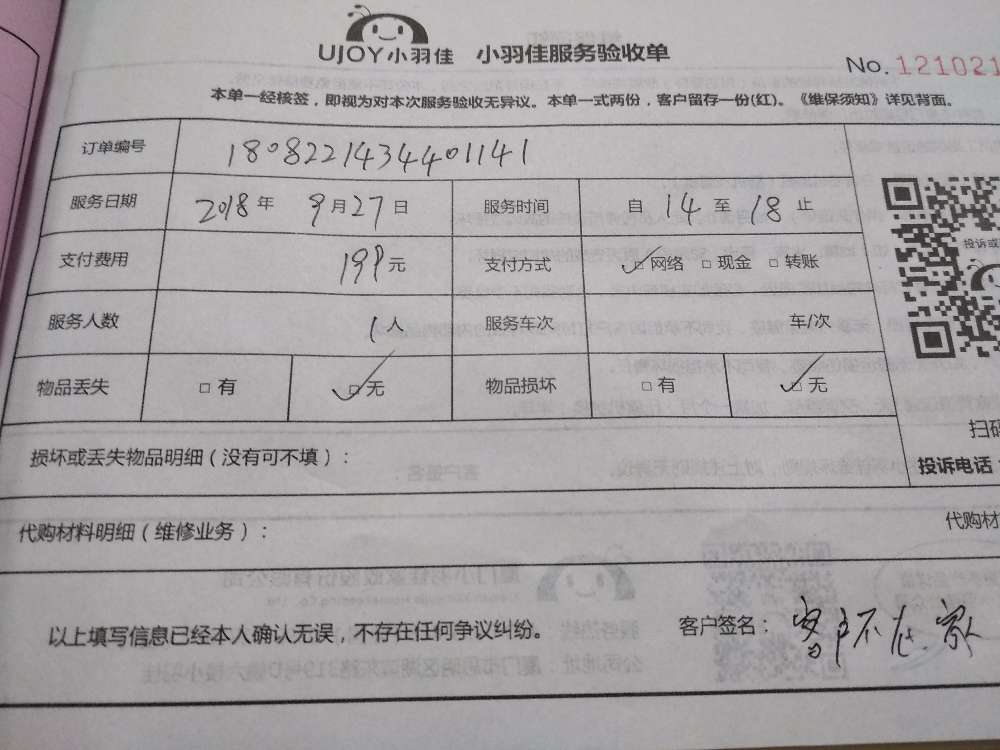 UJOY小羽佳 小羽佳服务验收单
No. 121021
本单一经核签，即视为对本次服务验收无异议。本单一式两份，客户留存一份(红)。《维保须知》详见背面。
订单编号 1808221434401141
服务日期 2018年 9月27日 服务时间 自 14 至 18 止
支付费用 199元 支付方式 ☑网络 □现金 □转账
投诉或
服务人数 1人 服务车次 车/次
物品丢失 □有 ☑无 物品损坏 □有 ☑无
扫码
损坏或丢失物品明细（没有可不填）：
投诉电话：
代购材料明细（维修业务）：
代购材
以上填写信息已经本人确认无误，不存在任何争议纠纷。 客户签名：客户不在家